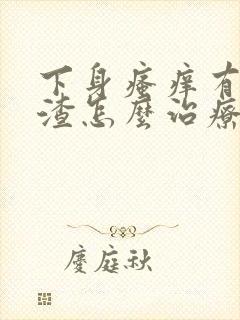 下身瘙痒有
渣怎麽治療
慶庭秋